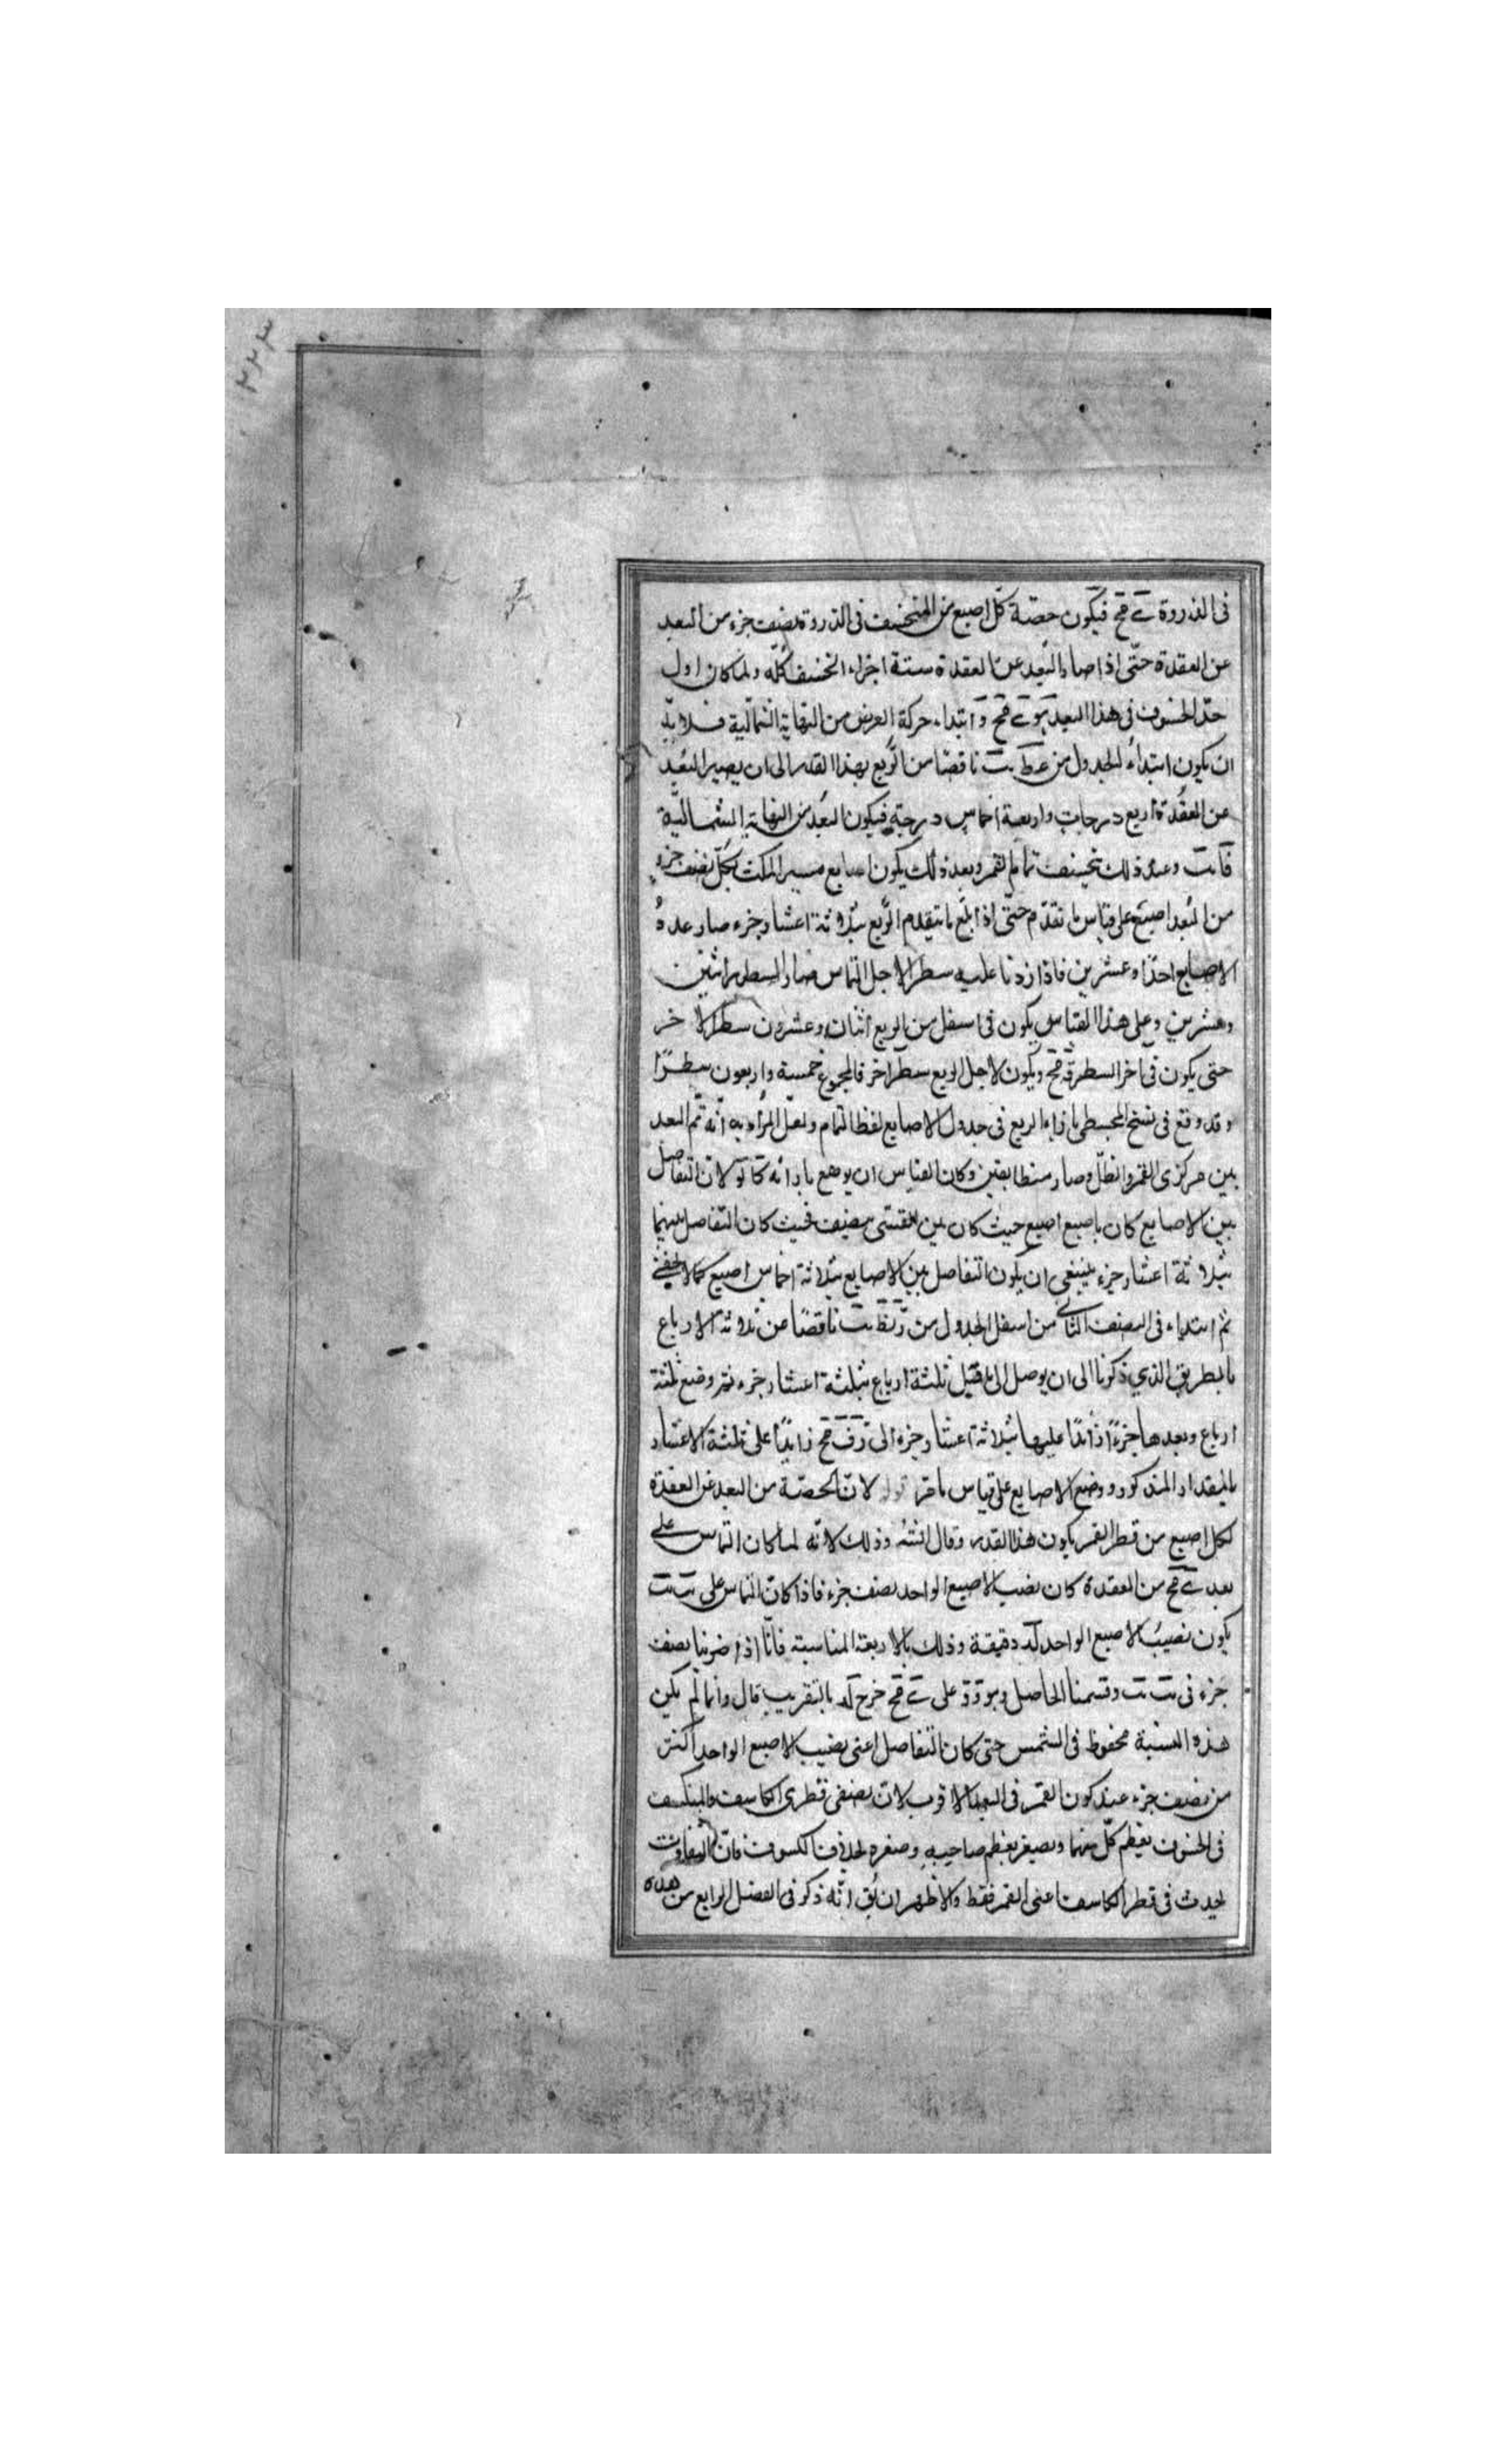 ٢٢٣
فى الذروة ى مح فيكون حصّة كل اصبع من المنخسف فى الذروة نصف جزء من البعد
عن العقدة حتّى اذا صار البُعد عن العقدة ستة اجزاء انخسف كلّه ولما كان اول
حدّ الخسوف فى هذا البعد هو ى مح وابتداء حركة العرض من النهاية الشمالية فلا بدّ
ان يكون ابتداءُ الجدول من عط يب ناقصًا من الرّبع بهذا القدر الى ان يصير البُعد
عن العقدة اربع درجات واربعة اخماس درجة فيكون البُعد من النهاية الشماليّة
وعند ذلك ينخسف تمام القمر وبعد ذلك يكون اصابع مسير المكث لكل نصف جزء
من البُعد اصبع على قياس ما تقدّم حتى اذا بلغ ما يتقدم الرّبع بثلاثة اعشار جزء صار عدهُ
الاصابع احدًا وعشرين فاذا زدنا عليه سطر الاجل التماس صار السطر اثنين
وعشرين وعلى هذا القياس يكون فى اسفل من الربع اثنان وعشرون سطرا لاخر
حتى يكون فى اخر السطر ق مح ويكون لاجل الربع سطر اخر فالمجموع خمسة واربعون سطرًا
وقد وقع فى نسخ المجسطى بازاء الربع فى جدول الاصابع لفظ التمام ولعل المراد به انّه تمّ البعد
بين مركزى القمر والظلّ وصار متطابقين وكان القياس ان يوضع بازائه كا لو لان التفاضل
بين الاصابع كان باصبع اصبع حيث كان بين بنصف فحيث كان التفاضل بينهما
بثلاثة اعشار جزء ينبغى ان يكون التفاضل بين الاصابع بثلاثة اخماس اصبع كما لا يخفى
ثم ابتداء فى النصف الثانى من اسفل الجدول من رنط يب ناقصًا من ثلاثة الارباع
بالطريق الذي ذكرنا الى ان يوصل الى ما قبل ثلثة ارباع بثلثة اعشار جزء ثم وضع ثلثة
ارباع وبعدها جزءًا زائدًا عليها بثلاثة اعشار جزء الى رف مح زايدًا على ثلثة الاعشار
بالمقدار المذكور ووضع الاصابع على قياس ما مرّ قوله لانّ الحصّة من البعد عن العقدة
لكل اصبع من قطر القمر يكون هذا القدر وقال وذلك لانّه لما كان التماس على
بعد ى مح من العقدة كان نصيب الاصبع الواحد نصف جزء فاذا كان التماس على يب يب
يكون نصيبُ الاصبع الواحد لد دقيقة وذلك بالاربعة المناسبة فانّا اذا ضربنا نصف
جزء فى يب يب وقسمنا الحاصل وهو و و على ى مح خرج لد بالتقريب قال وانما لم يكن
هذه النسبة محفوظ فى الشمس حتى كان التفاضل اعنى نصيب الاصبع الواحد اكثر
من نصف جزء عند كون القمر فى البعد الاقرب لان نصفى قطرى الكاسف والمنكسف
فى الخسوف يعظم كلّ منهما ويصغر بعظم صاحبه وصغره بخلاف الكسوف فانّ التفاوت
يحدث فى قطر الكاسف اعنى القمر فقط والاظهر ان يق انّه ذكر فى الفصل الرابع من هذه